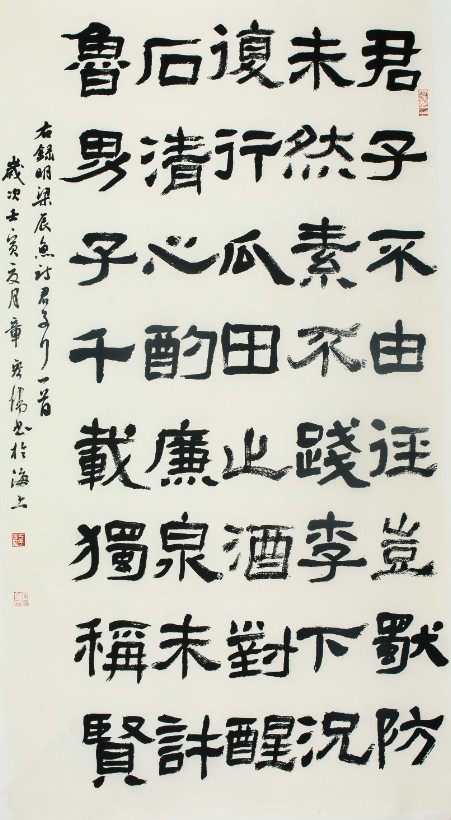 君子不由徑豈猒防
未然素不踐李下況
復行瓜田止酒對醒
石清心酌廉泉未許
魯男子千載獨稱賢
右錄明梁辰魚詩君子行一首
歲次壬寅夏月章書於海上